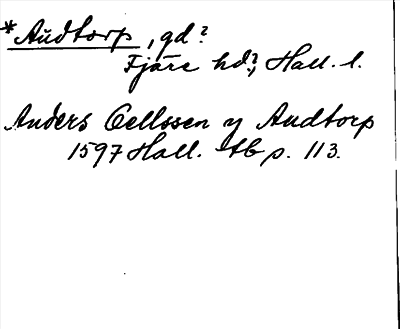 *Audtorp, gd?
Fjäre hd?, Hall. l.
Anders Oellssen y Audtorp
1597 Hall. tb p. 113.